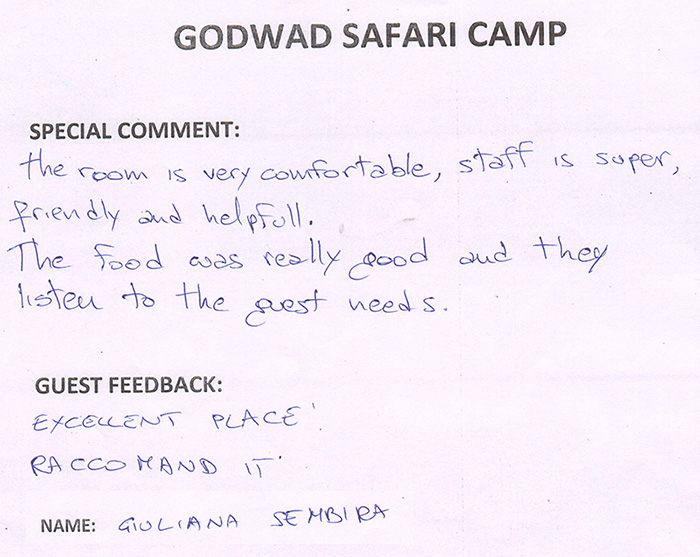 GODWAD SAFARI CAMP
SPECIAL COMMENT:
the room is very comfortable, staff is super,
friendly and helpfull.
The food was really good and they
listen to the guest needs.
GUEST FEEDBACK:
EXCELLENT PLACE!
RACCOMAND IT
NAME: GIULIANA SEMBIRA